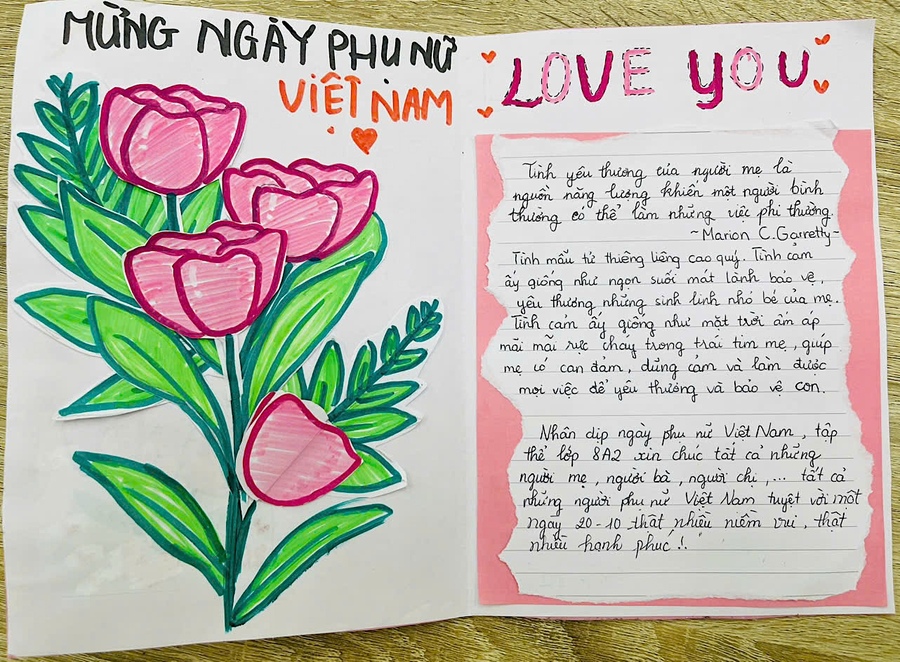 MỪNG NGÀY PHỤ NỮ
VIỆT NAM
LOVE YOU
Tình yêu thương của người mẹ là
nguồn năng lượng khiến một người bình
thường có thể làm những việc phi thường.
~Marion C.Garretty~
Tình mẫu tử thiêng liêng cao quý. Tình cảm
ấy giống như ngọn suối mát lành bảo vệ,
yêu thương những sinh linh nhỏ bé của mẹ.
Tình cảm ấy giống như mặt trời ấm áp
mãi mãi rực cháy trong trái tim mẹ, giúp
mẹ có can đảm, dũng cảm và làm được
mọi việc để yêu thương và bảo vệ con.
Nhân dịp ngày phụ nữ Việt Nam, tập
thể lớp 8A2 xin chúc tất cả những
người mẹ, người bà, người chị,... tất cả
những người phụ nữ Việt Nam tuyệt vời một
ngày 20-10 thật nhiều niềm vui, thật
nhiều hạnh phúc!.